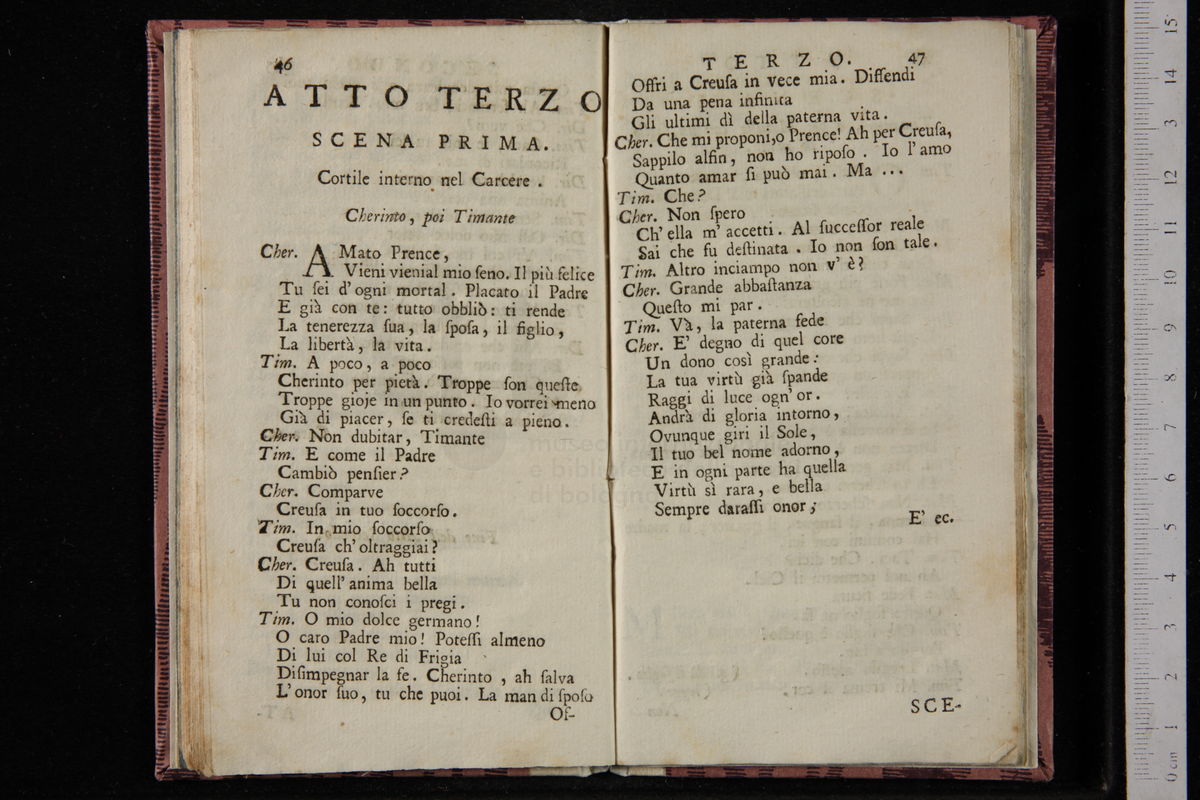 46
ATTO TERZO
SCENA PRIMA.
Cortile interno nel Carcere .
Cherinto, poi Timante
Cher. AMato Prence,
Vieni vienial mio ſeno. Il più felice
Tu ſei d' ogni mortal . Placato il Padre
E già con te: tutto obbliò: ti rende
La tenerezza ſua, la ſpoſa, il figlio,
La libertà, la vita.
Tim. A poco, a poco
Cherinto per pietà. Troppe ſon queſte
Troppe gioje in un punto. Io vorrei meno
Già di piacer, ſe ti credeſti a pieno.
Cher. Non dubitar, Timante
Tim. E come il Padre
Cambiò penſier?
Cher. Comparve
Creuſa in tuo ſoccorſo.
Tim. In mio ſoccorſo
Creuſa ch' oltraggiai?
Cher. Creuſa. Ah tutti
Di quell' anima bella
Tu non conoſci i pregi.
Tim. O mio dolce germano!
O caro Padre mio! Poteſſi almeno
Di lui col Re di Frigia
Diſimpegnar la fe. Cherinto , ah ſalva
L' onor ſuo, tu che puoi. La man di ſpoſo
Of-
TERZO. 47
Offri a Creuſa in vece mia. Diffendi
Da una pena infinita
Gli ultimi dì della paterna vita.
Cher. Che mi proponi,o Prence! Ah per Creuſa,
Sappilo alfin, non ho ripoſo . Io l' amo
Quanto amar ſi può mai. Ma ...
Tim. Che?
Cher. Non ſpero
Ch' ella m' accetti. Al ſucceſſor reale
Sai che fu deſtinata . Io non ſon tale.
Tim. Altro inciampo non v' è?
Cher. Grande abbaſtanza
Queſto mi par.
Tim. Và, la paterna fede
Cher. E' degno di quel core
Un dono così grande:
La tua virtù già ſpande
Raggi di luce ogn' or.
Andrà di gloria intorno,
Ovunque giri il Sole,
Il tuo bel nome adorno,
E in ogni parte ha quella
Virtù sì rara, e bella
Sempre daraſſi onor;
E' ec.
SCE-